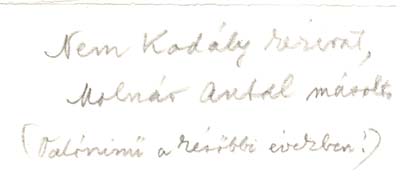 Nem Kodály kézirat,
Molnár Antal másolt.
(Valószínű a későbbi években!)